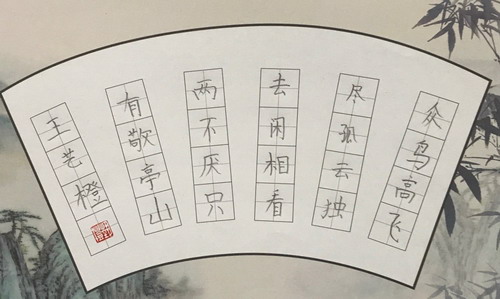 众鸟高飞
尽孤云独
去闲相看
两不厌只
有敬亭山
王艺橙